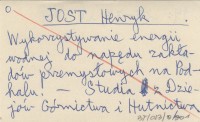 0
JOST Henryk .
Wykorzystywanie energii
wodnej do napędu zakła-
dów przemysłowych na Pod-
halu. — Studia z Dzie-
jów Górnictwa i Hutnictwa